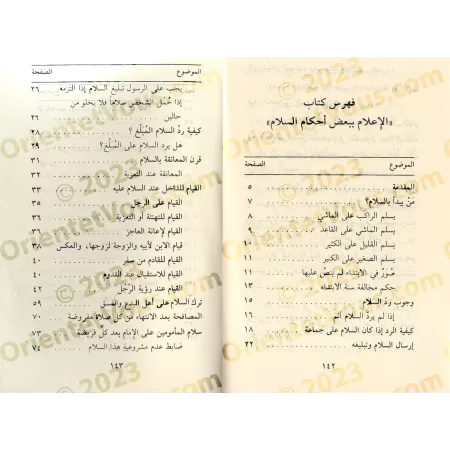 فهرس كتاب
«الإعلام ببعض أحكام السلام»
الموضوع الصفحة
المقدمة ٥
مَنْ يبدأ بالسلام؟ ٧
يسلم الراكب على الماشي ٨
يسلم الماشي على القاعد ٩
يسلم القليل على الكثير ١٠
يسلم الصغير على الكبير ١١
صُوَرٌ في الابتداء لم يُنص عليها ١٢
حكم مخالفة سنة الابتداء ١٣
وجوب رد السلام ١٥
إذا لم يردّ السلام أثم ١٦
كيفية الرد إذا كان السلام على جماعة ١٨
إرسال السلام وتبليغه ٢٢
١٤٢
الموضوع الصفحة
يجب على الرسول تبليغ السلام إذا التزمه ٢٦
إذا حُمل الشخص سلاماً فلا يخلو من
حالين ٢٦
كيفية ردّ السلام المُبلَّغ؟ ٢٨
هل يرد السلام على المبلِّغ؟ ٢٩
قرن المعانقة بالسلام ٣١
المعانقة عند التعزية ٣٢
القيام للداخل عند السلام عليه ٣٣
القيام على الرجل ٣٥
القيام للتهنئة أو التعزية
القيام لإعانة العاجز
قيام الابن لأبيه والزوجة لزوجها، والعكس ٣٨
القيام للقادم من سفر ٤٠
القيام للاستقبال عند القدوم ٤٠
القيام عند رؤية الرجُل ٤٢
ترك السلام على أهل البدع والفسق ٥٩
المصافحة بعد الانتهاء من كل صلاة مفروضة ٧٠
سلام المأمومين على الإمام بعد كل فريضة ٧٣
ضابط عدم مشروعية هذا السلام ٧٤
١٤٣
© 2023
OrientetVenus.com